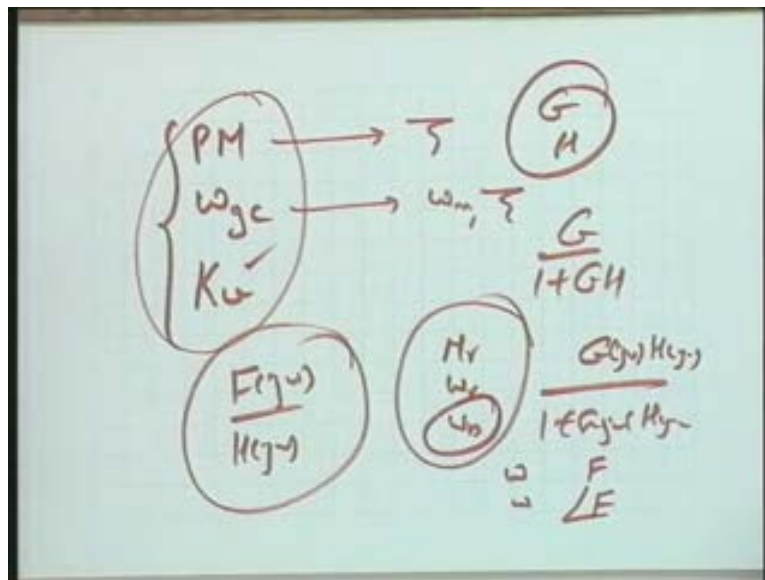 PM → ξ
ω_gc → ω_n, ξ
K_v ✓
G
H
G
1+GH
F(jω)
H(jω)
M_r
ω_r
ω_b
G(jω) H(jω)
1+G(jω) H(jω
ω F
ω ∠F